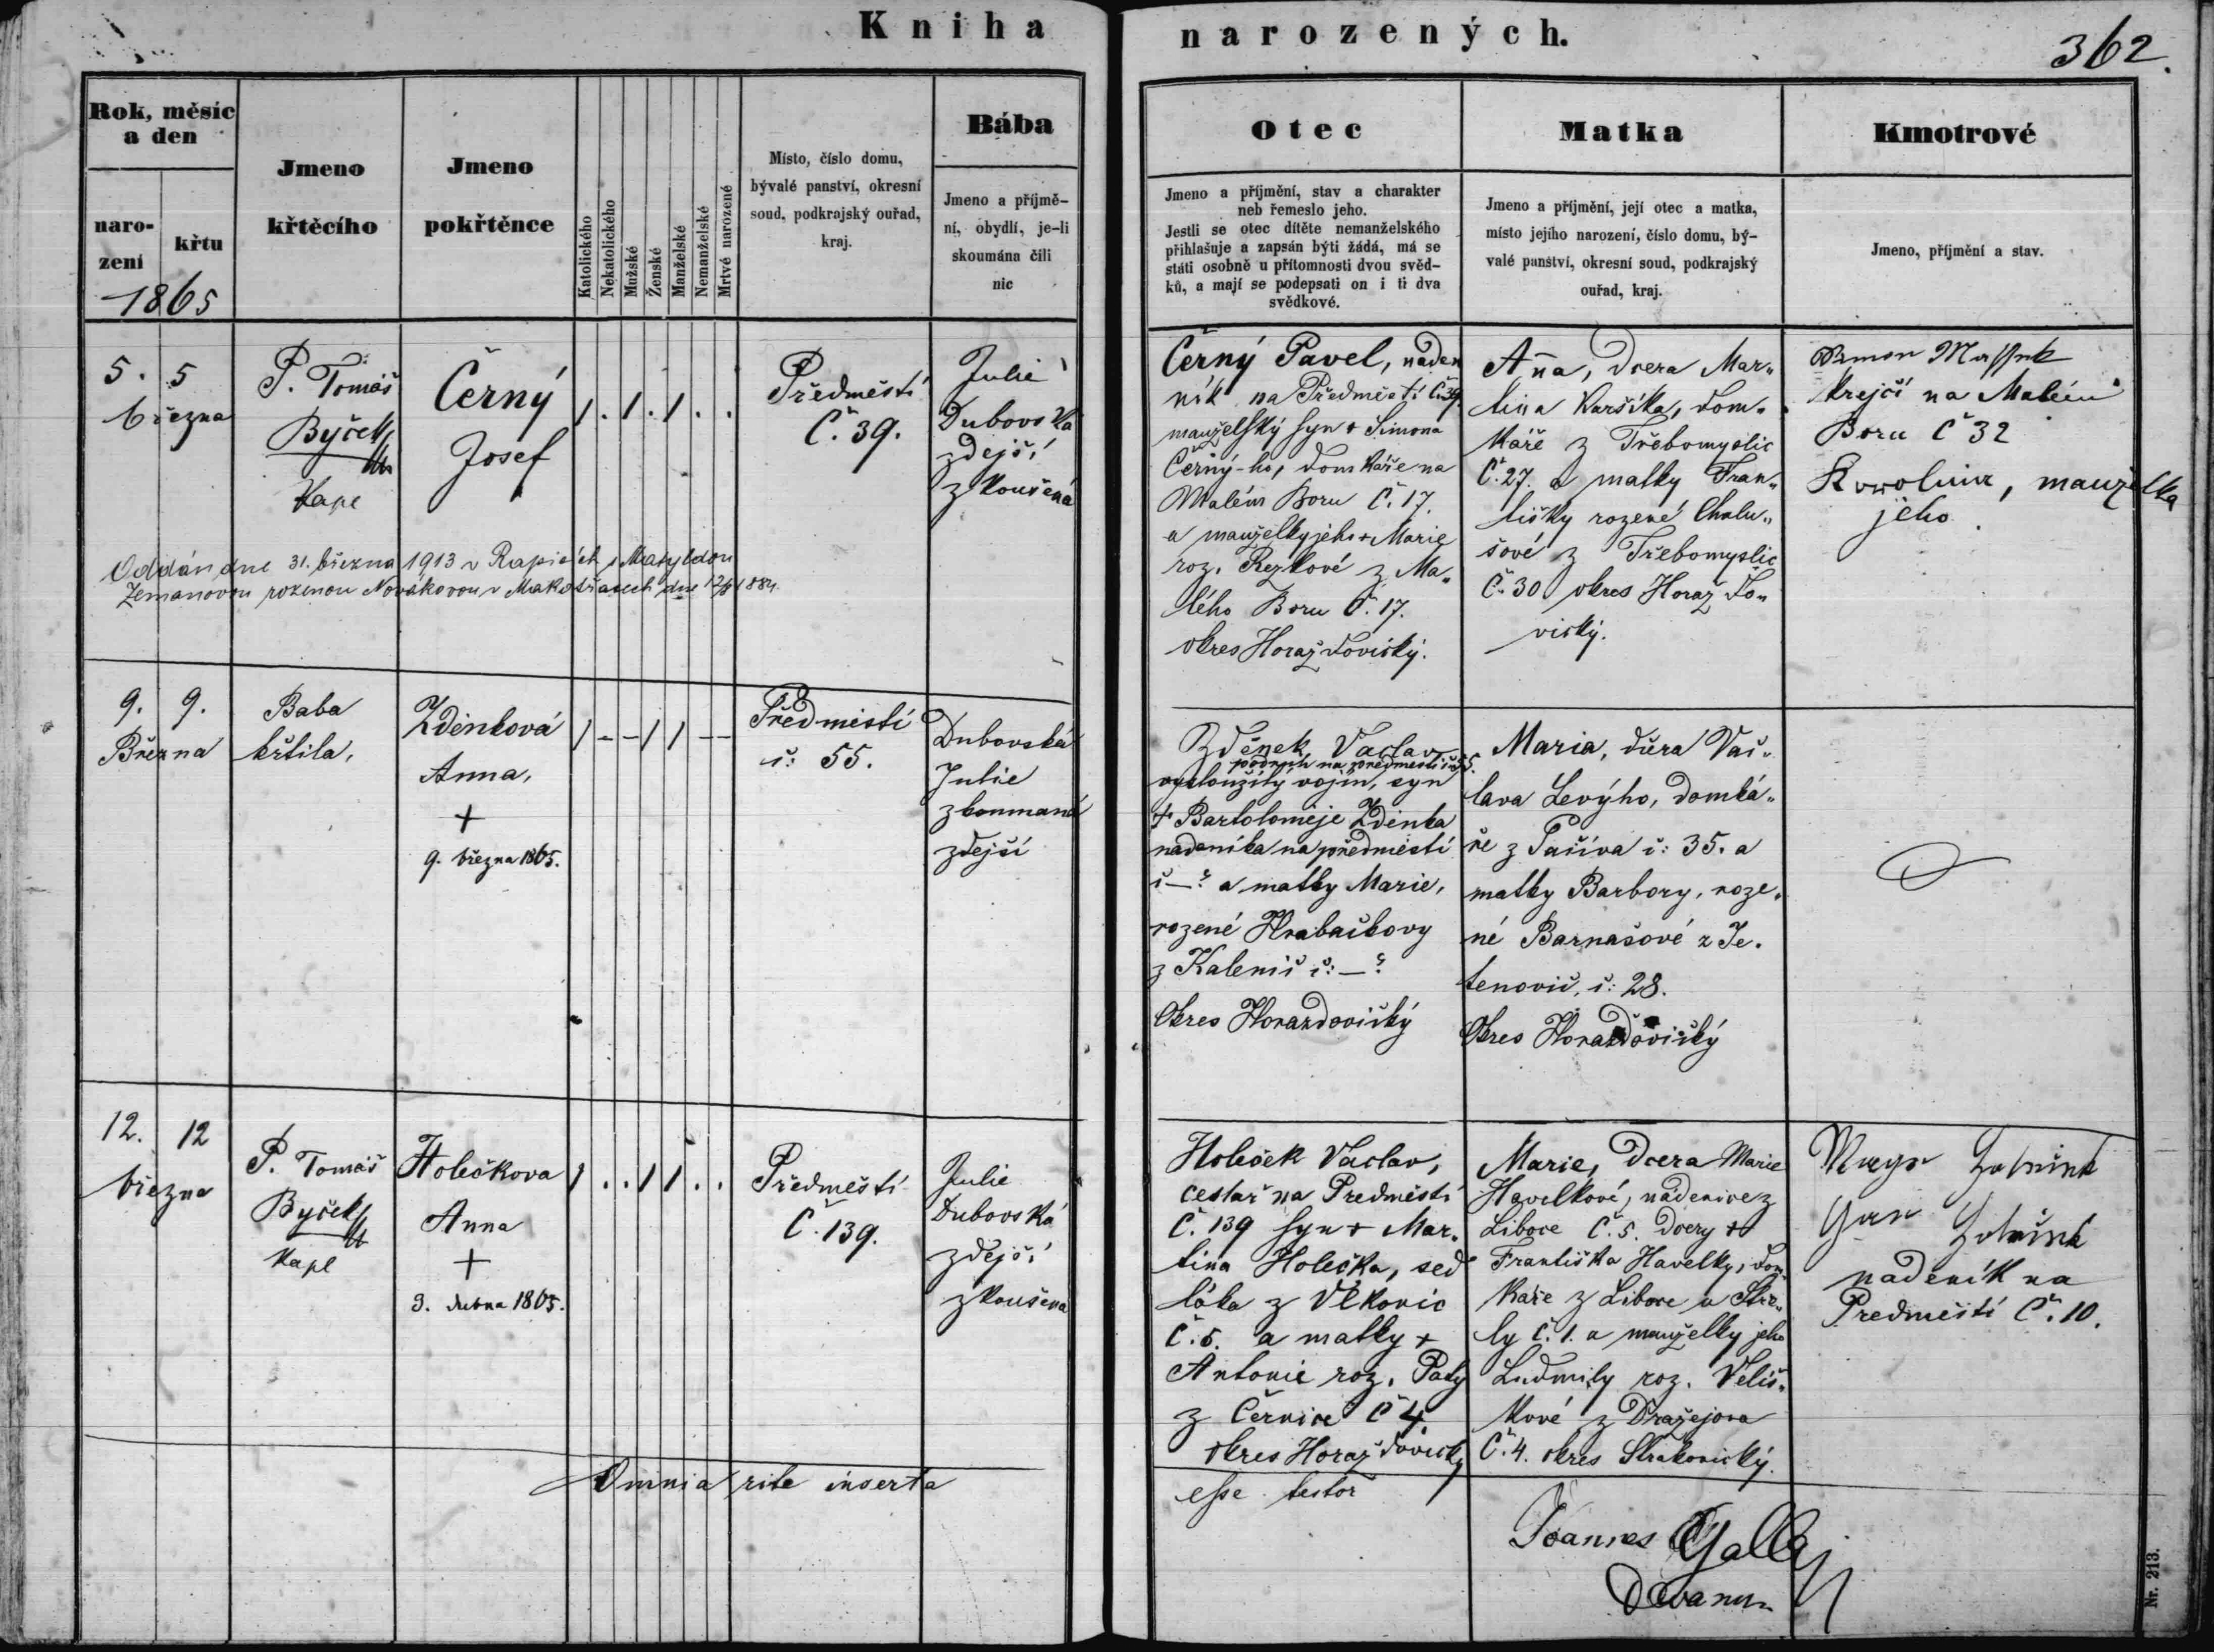 Kniha
narozených.
362.
Rok, měsíc
a den
naro-
zení
křtu
1865
Jmeno
křtěcího
Jmeno
pokřtěnce
Katolického
Nekatolického
Mužské
Ženské
Manželské
Nemanželské
Mrtvé narozené
Místo, číslo domu,
bývalé panství, okresní
soud, podkrajský ouřad,
kraj.
Bába
Jmeno a příjmě-
ní, obydlí, je-li
skoumána čili
nic
Otec
Jmeno a příjmění, stav a charakter
neb řemeslo jeho.
Jestli se otec dítěte nemanželského
přihlašuje a zapsán býti žádá, má se
státi osobně u přítomnosti dvou svěd-
ků, a mají se podepsati on i ti dva
svědkové.
Matka
Jmeno a příjmění, její otec a matka,
místo jejího narození, číslo domu, bý-
valé panství, okresní soud, podkrajský
ouřad, kraj.
Kmotrové
Jmeno, příjmění a stav.
5. 5
března
P. Tomáš
Byček
Kapl
Černý
Josef
1 . 1 . 1 . .
Předměstí
Č. 39.
Julie
Dubovská
zdejší
zkoušená
Černý Pavel, náden
ník na Předměstí Č. 39.
manželský syn + Šimona
Černý-ho, domkáře na
Malém Boru Č. 17.
a manželky jeho + Marie
roz. Rezkové z Ma„
lého Boru Č. 17.
okres Horažďovický.
Anna, dcera Mar„
tina Karšíka, dom„
káře z Třebomyslic
Č. 27. a matky Fran„
tišky rozené Chalu„
šové z Třebomyslic
Č. 30 okres Horažďo„
vický.
krejčí na Malém
Boru Č 32
Karolina, manželka
jeho.
Oddán dne 31. března 1913 v Rapicích s Matyldou
Zemanovou rozenou Novákovou v Makotřasech dne 1884.
9. 9.
Března
Baba
křtila,
Zdenková
Anna,
+
9. března 1865.
1 - - 1 1 - -
Předměstí
č: 55.
Dubovská
Julie
zkoumaná
zdejší
Zděnek Vaclav
podruh na předměstí č. 55.
vysloužilý vojín, syn
+ Bartoloměje Zděnka
nádeníka na předměstí
č —? a matky Marie,
rozené Hrabačkovy
z Kalenič č: —?
Okres Horazdovický
Maria, dcera Vac„
lava Levýho, domká„
ře z Pačiva č: 35. a
matky Barbory, roze„
né Barnašové z Je„
tenovic, č: 28.
Okres Horazdovický
12. 12
března
P. Tomáš
Byček
Kapl
Holečkova
Anna
+
3. dubna 1865.
1 . . 1 1 . .
Předměstí
Č. 139.
Julie
Dubovská
zdejší
zkoušena
Holeček Václav,
cestař na Předměstí
Č. 139 syn + Mar„
tina Holečka, sed
láka z Vlkonic
Č. 5. a matky +
Antonie roz. Pady
z Černice Č 4
okres Horažďovický
Marie, dcera Marie
Havelkové, nádenice z
Liboce Č. 5. dcery +
Františka Havelky, dom„
káře z Liboce u Stře„
ly č. 1. a manželky jeho
Ludmily roz. Veliš„
kové z Dražejova
Č. 4. okres Strakonický.
nádeník na
Předměstí Č. 10.
Omnia rite inserta
esse testor
Joannes Gallaj
Decanus
Nr. 213.